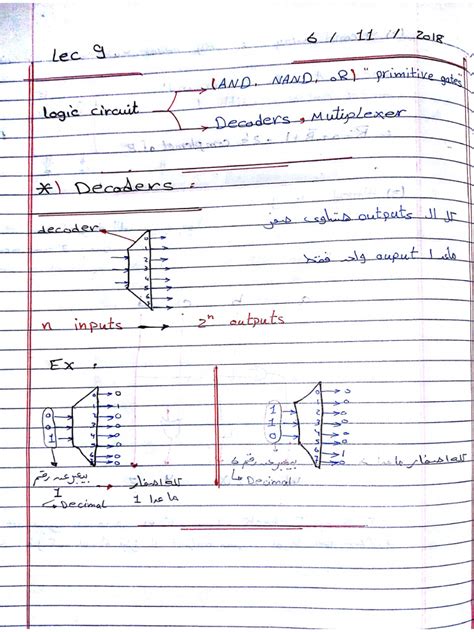 Lec 9
6 / 11 / 2018
Logic circuit
(AND, NAND, OR) "primitive gates"
Decoders, Mutiplexer
*) Decoders :
decoder
كل ال outputs هتساوى صفر
ماعدا ouput واحد فقط
0
1
2
3
4
5
6
7
n inputs → 2ⁿ outputs
Ex :
0
0
1
0
1
2
3
4
5
6
7
0
1
0
0
0
0
0
0
بيعبر عن رقم
1
Decimal
كله اصفار
ما عدا 1
1
1
0
0
1
2
3
4
5
6
7
0
0
0
0
0
0
1
0
بيعبر عن رقم 6
Decimal
كله اصفار ماعدا